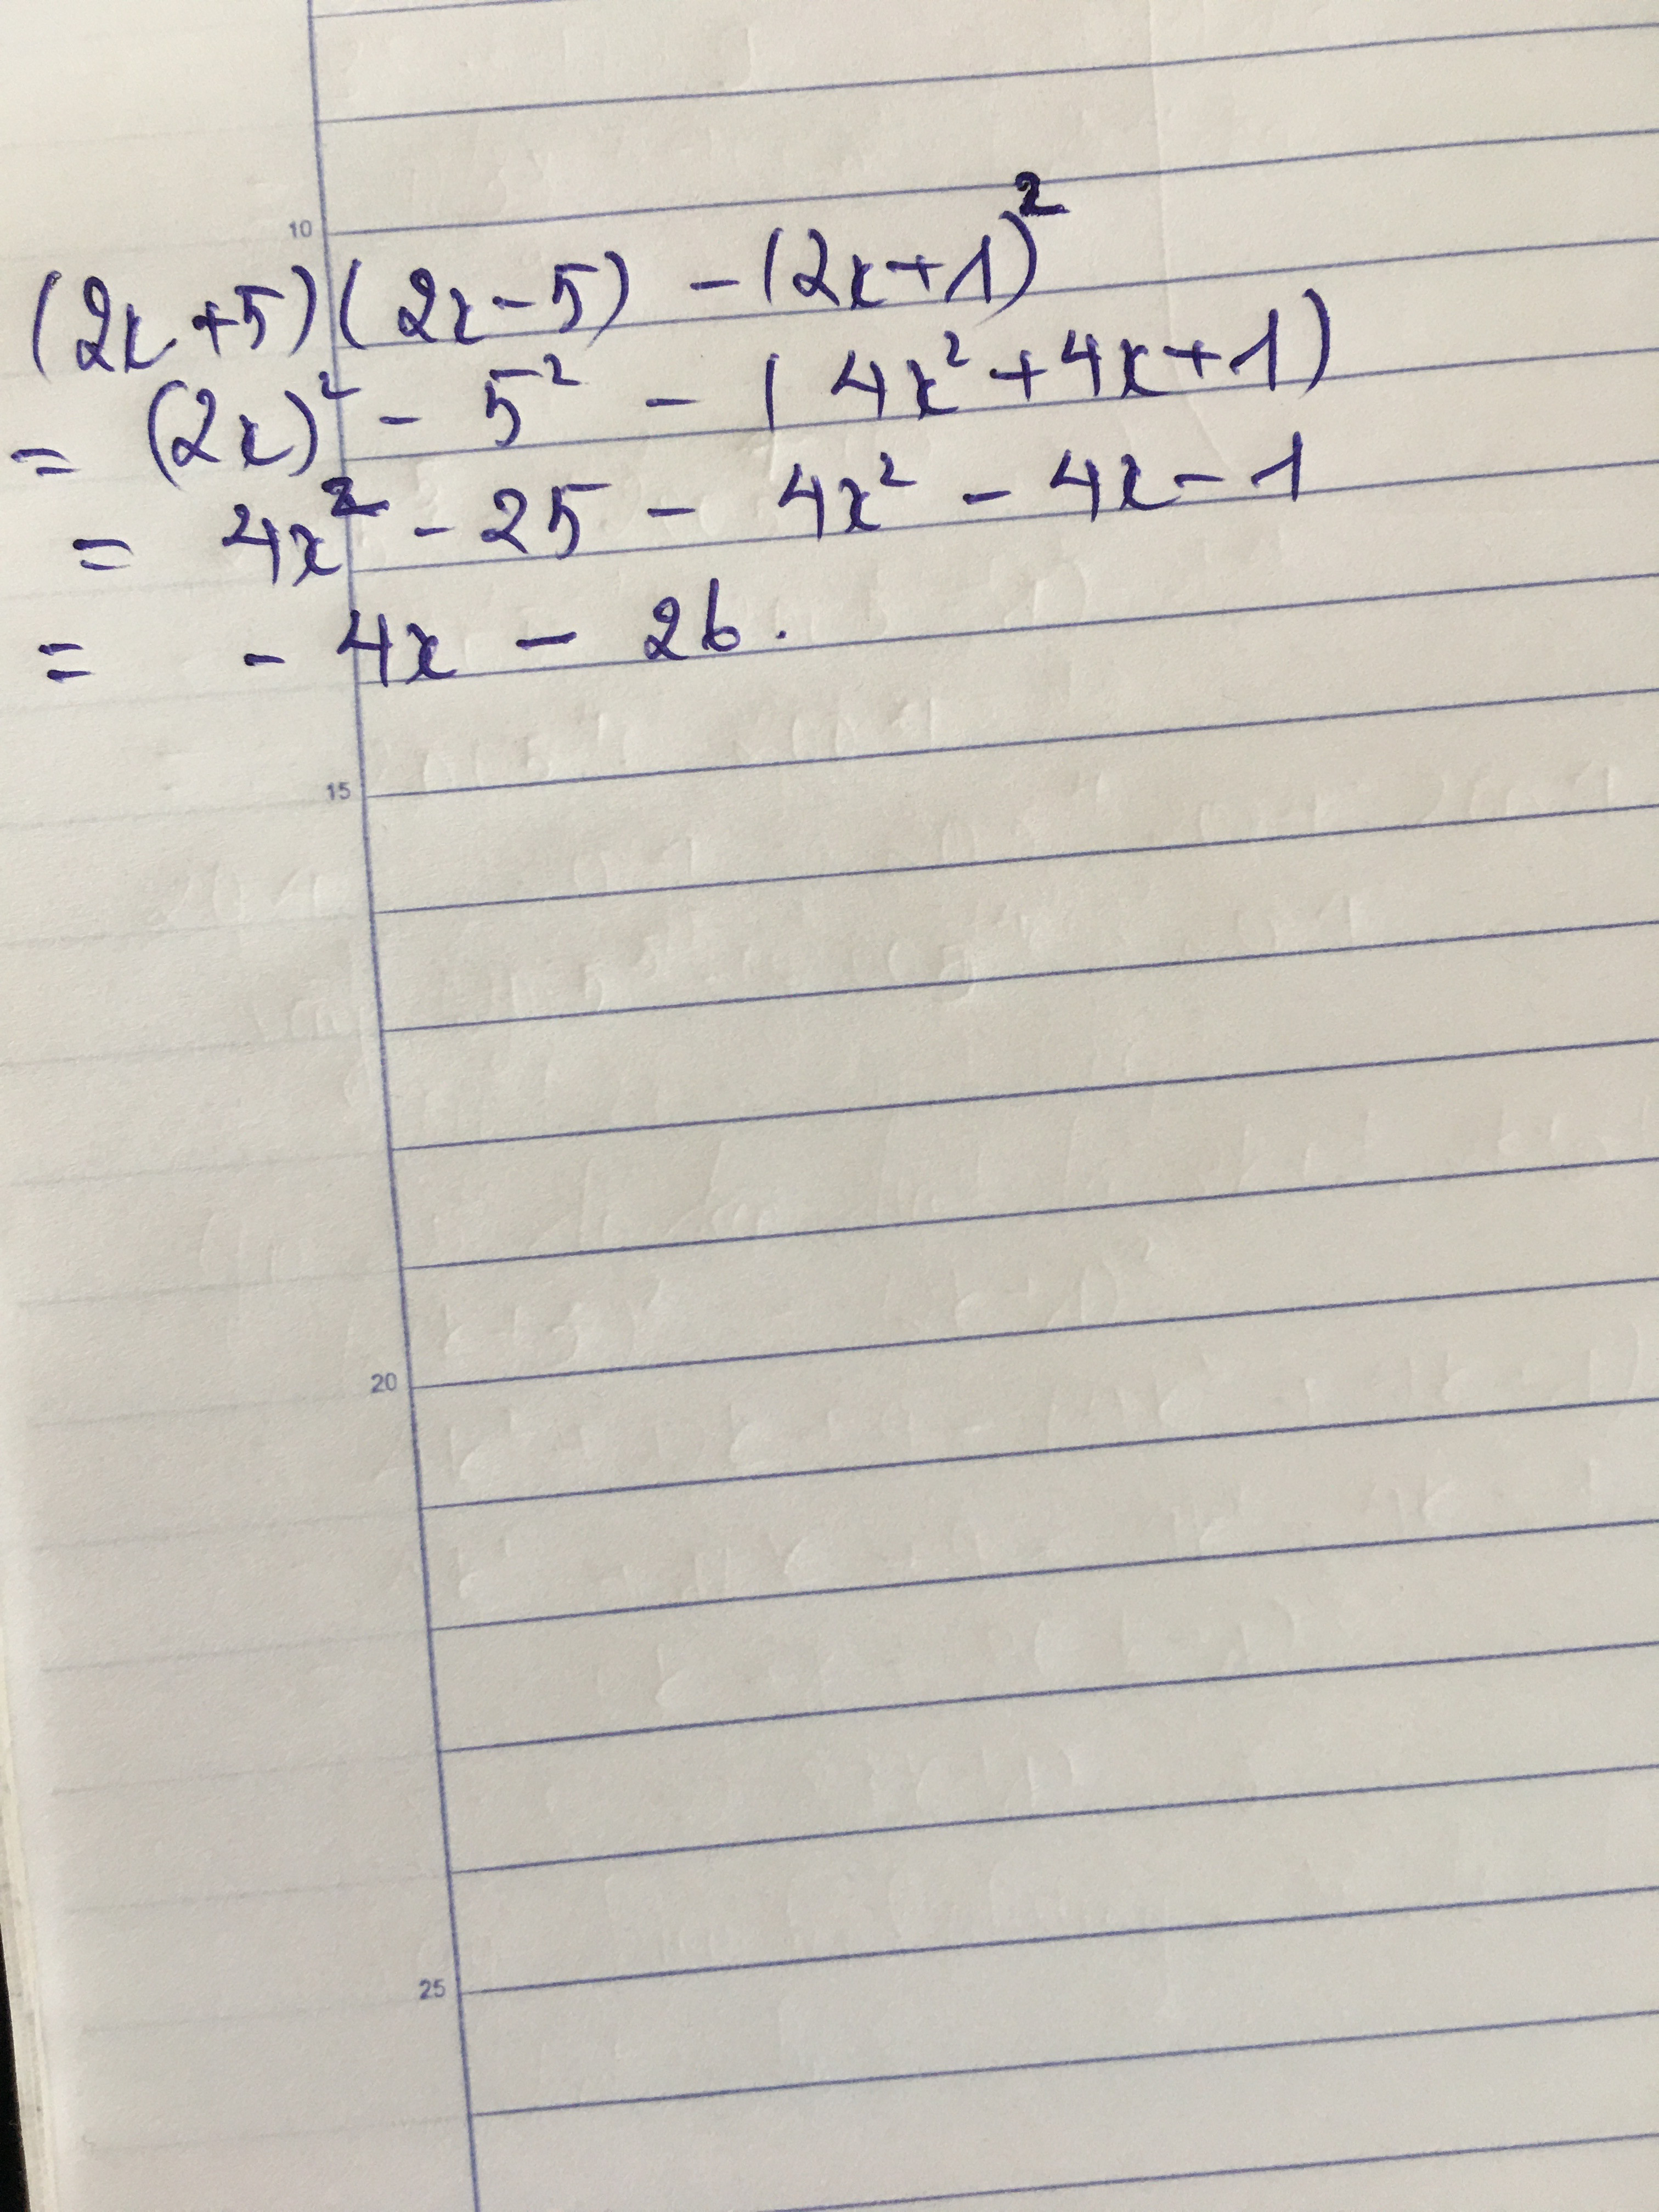 10
(2x+5)(2x-5) - (2x+1)²
= (2x)² - 5² - (4x²+4x+1)
= 4x² - 25 - 4x² - 4x - 1
= - 4x - 26.
15
20
25